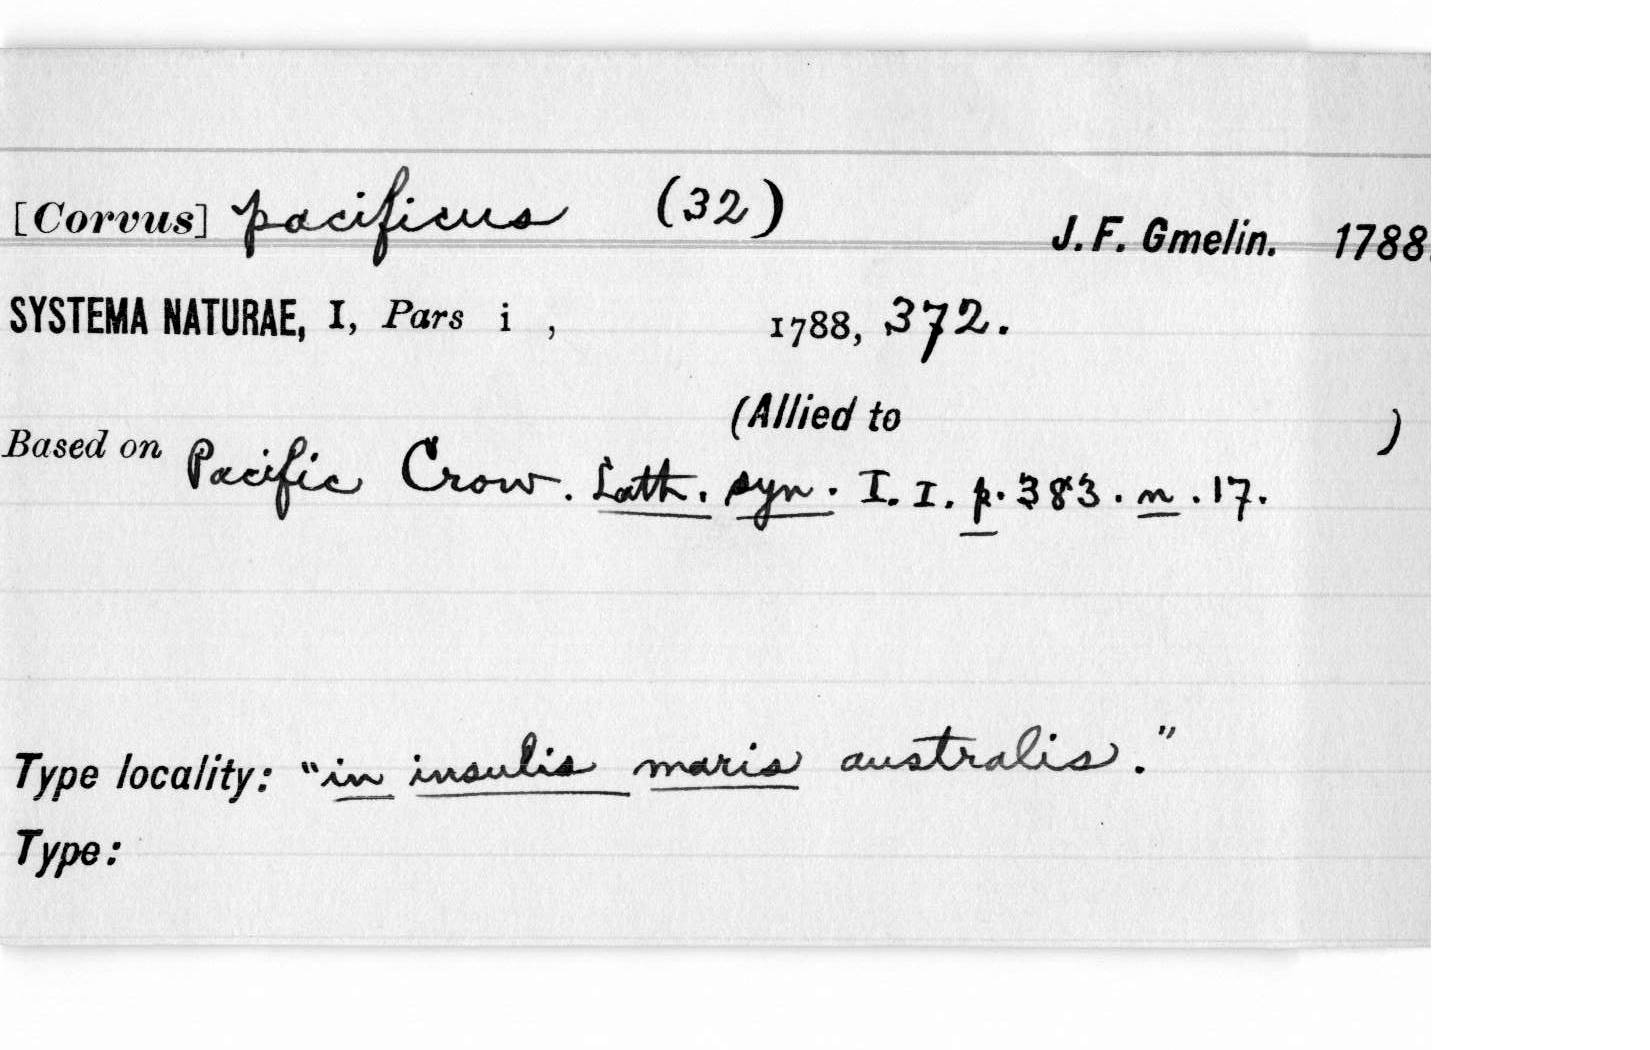 [Corvus] pacificus (32) J. F. Gmelin. 1788.
SYSTEMA NATURAE, I, Pars i , 1788, 372.
(Allied to )
Based on Pacific Crow. Lath. syn. I. I. p. 383. n. 17.
Type locality: "in insulis maris australis."
Type: